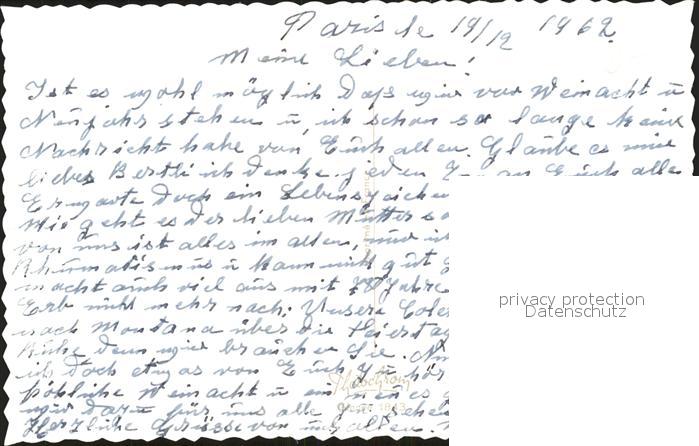 Paris le 19/12 1962.
Meine Lieben!
Ist es wohl möglich dass wir vor Weinacht u
Neujahr stehen u, ich schon so lange keine
Nachricht habe von Euch allen. Glaube es mir
liebes Bertli ich denke jeden Tag an Euch alle
Erwarte doch ein Lebenszeichen
Wie geht es der lieben Mutter
von uns ist alles im alten, nur ich
Rhumatismus u kann nicht gut
macht auch viel aus mit Jahre
Erb nicht mehr nach. Unsere
nach Montana über die Feiertag
Ruhe denn wir brauchen Sie.
ich doch etwas von Euch zu hör
fröhliche Weinacht u ein
wir dazu für uns alle
Herzliche Grüsse von uns allen.
privacy protection
Datenschutz